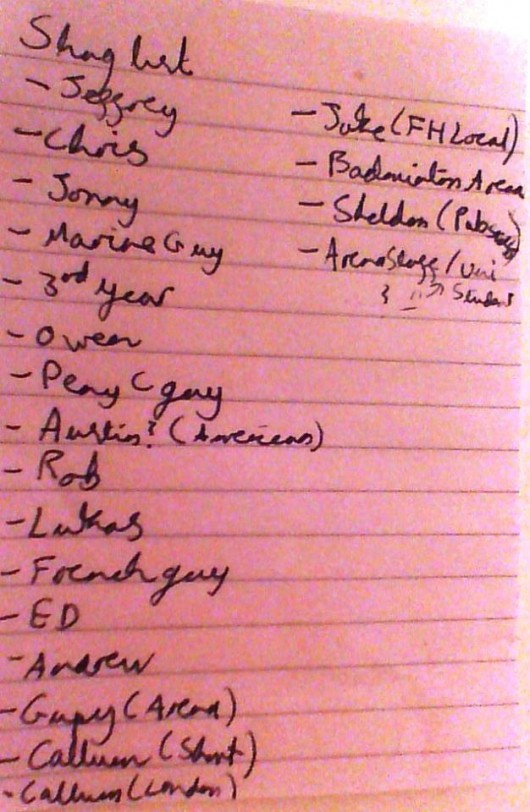 Shag list
- Jeffrey
- Chris
- Jonny
- Marine Guy
- 3rd year
- Owen
- Peny C guy
- Austin? (American)
- Rob
- Lukas
- French guy
- ED
- Andrew
- Gupy (Arena)
- Callum (Shirt)
- Callum (London)
- Jake (FH Local)
- Badminton Arena
- Sheldon (Pub
- Arena Stage / Uni
Student